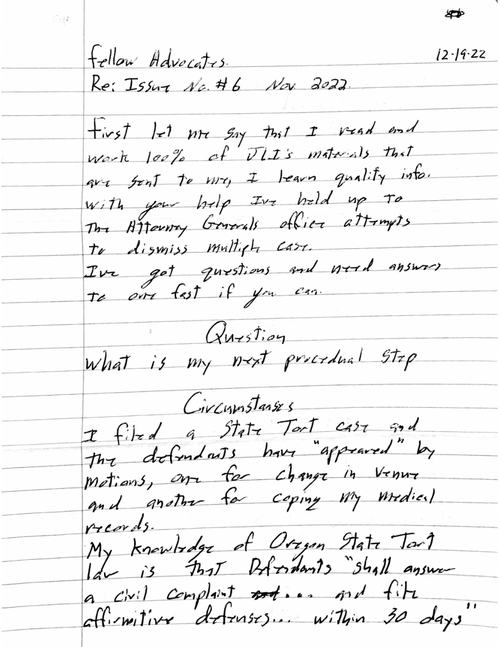 12-19-22
Fellow Advocates.
Re: Issue No. #6 Nov 2022.
First let me say that I read and
work 100% of JLI's materials that
are sent to me, I learn quality info.
With your help I've held up to
The Attorney Generals office attempts
to dismiss multiple case.
I've got questions and need answers
to one fast if you can.
Question
What is my next procedual step
Circumstanses
I filed a State Tort case and
the defendants have "appeared" by
motions, one for change in venue
and another for coping my medical
records.
My knowledge of Oregon State Tort
law is that Defendants "shall answer
a civil complaint ... and file
affirmitive defenses... within 30 days"